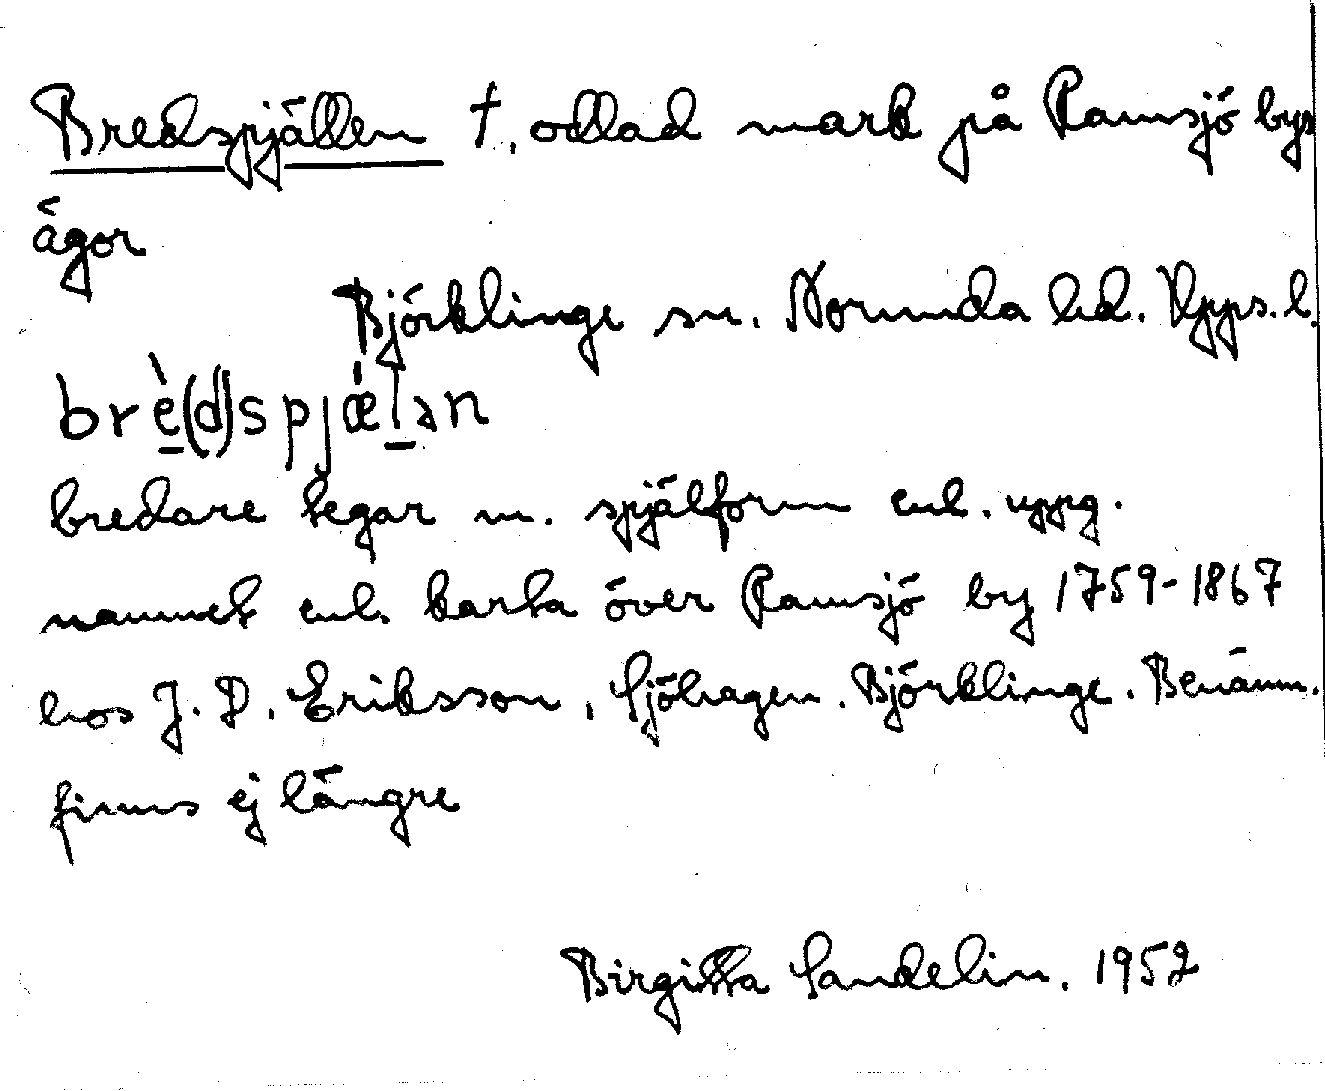 Bredspjällen †, odlad mark på Ramsjö bys
ägor
Björklinge sn. Norunda hd. Upps. l.
brè(d)spjǽlən
bredare tegar m. spjälform enl. uppg.
namnet enl. karta över Ramsjö by 1759-1867
hos J. P. Eriksson, Sjöhagen. Björklinge. Benämn.
finns ej längre
Birgitta Sandelin. 1952